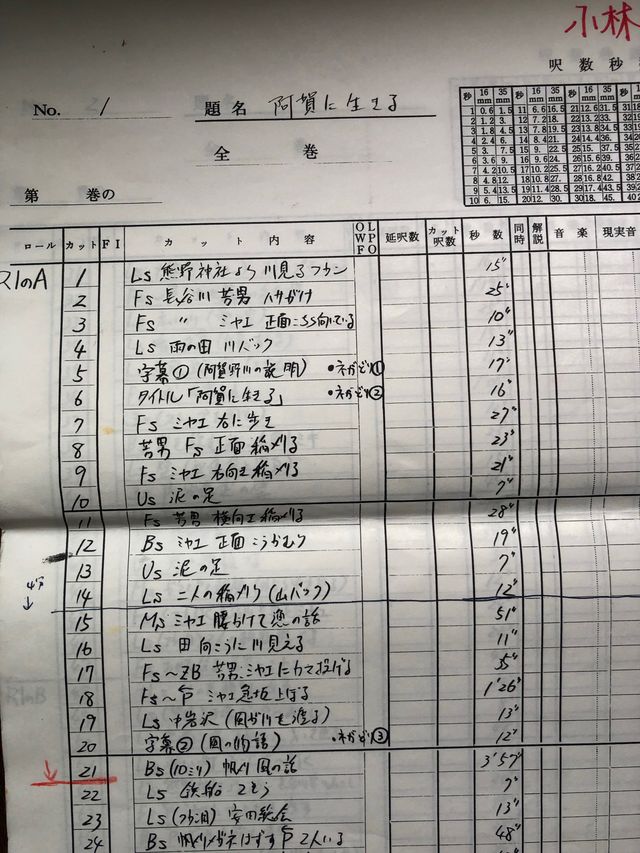 小林
呎数秒
No. 1 題名 阿賀に生きる
全 巻
第 巻の
秒 16mm 35mm 秒 16mm 35mm 秒 16mm 35mm
1 0.6 1.5 11 6.6 16.5 21 12.6 31.5 31
2 1.2 3. 12 7.2 18. 22 13.2 33. 32
3 1.8 4.5 13 7.8 19.5 23 13.8 34.5 33
4 2.4 6. 14 8.4 21. 24 14.4 36.
5 3. 7.5 15 9. 22.5 25 15. 37.5
6 3.6 9. 16 9.6 24. 26 15.6 39.
7 4.2 10.5 17 10.2 25.5 27 16.2 40.5
8 4.8 12. 18 10.8 27. 28 16.8 42.
9 5.4 13.5 19 11.4 28.5 29 17.4 43.5
10 6. 15. 20 12. 30. 30 18. 45. 40
ロール カット FI カット内容 OWF LPO 延呎数 カット呎数 秒数 同時 解説 音楽 現実音
R1のA 1 Ls 熊野神社より川見るフカン 15"
2 Fs 長谷川芳男 ハサがけ 25"
3 Fs 〃 ミヤエ 正面こっち向いている 10"
4 Ls 雨の田 川バック 13"
5 字幕① (阿賀野川の説明) •ネガどり① 17"
6 タイトル「阿賀に生きる」 •ネガどり② 16"
7 Fs ミヤエ 右に歩き 27"
8 芳男 Fs 正面稲刈る 23"
9 Fs ミヤエ 右向き稲刈る 21"
10 Us 泥の足 7"
11 Fs 芳男 横向き稲刈る 28"
12 Bs ミヤエ 正面こうかむり 19"
13 Us 泥の足 7"
14 Ls 二人の稲刈り (山バック) 12"
15 Ms ミヤエ 腰かけて恋の話 51"
16 Ls 田 向こうに川見える 11"
17 Fs〜ZB 芳男、ミヤエに 投げる 35"
18 Fs〜 ミヤエ 急坂上ぼる 1'26"
19 Ls 中岩沢 13"
20 字幕② (風の物語) •ネガどり③ 12"
21 Bs (10ミリ) 帆かけ 風の話 3'57"
22 Ls 鉄船 7"
23 Ls (フカン目) 安田 13"
24 Bs メガネはずす 2人いる 48"